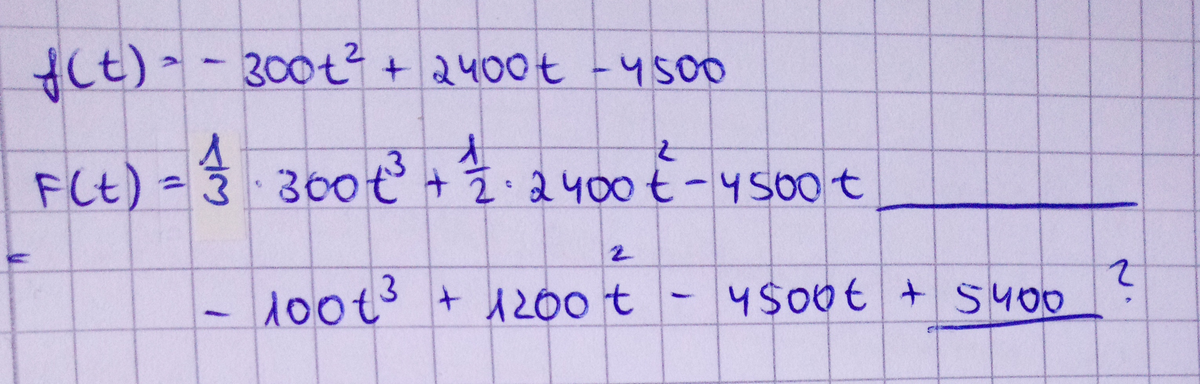 f(t) = - 300t² + 2400t - 4500
F(t) = 1/3 · 300t³ + 1/2 · 2400t² - 4500t ______
=
- 100t³ + 1200t² - 4500t + 5400 ?